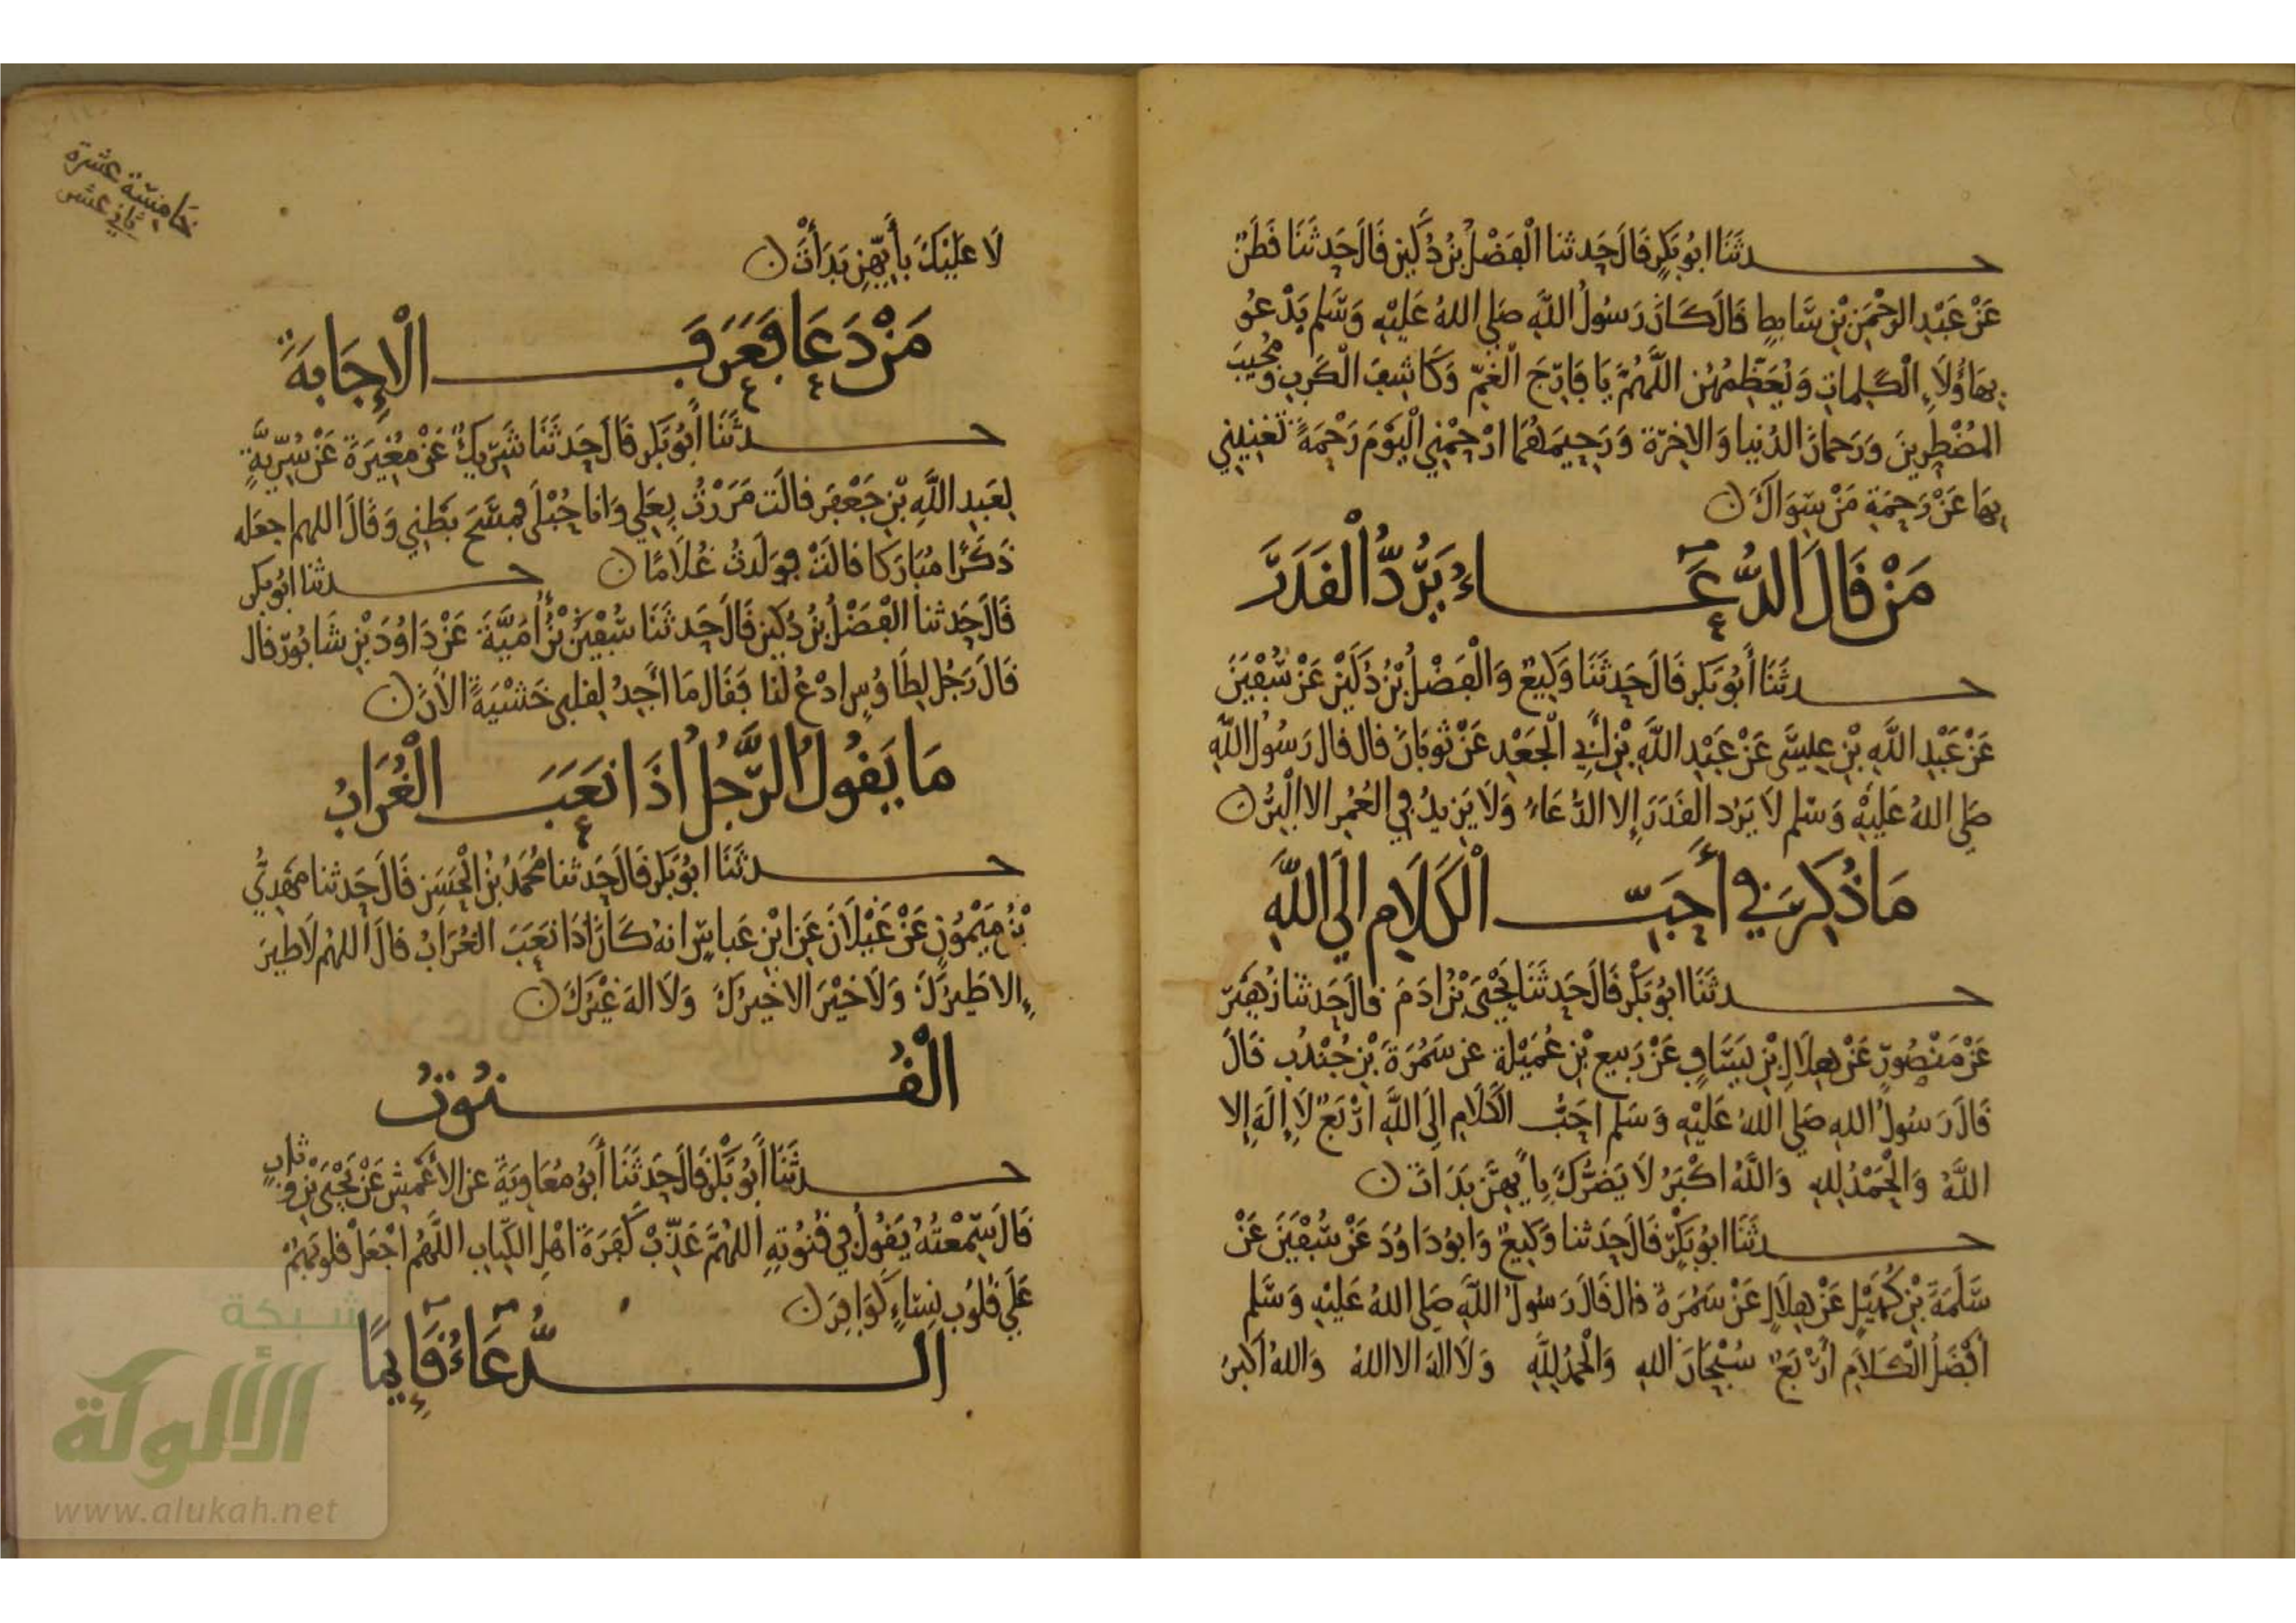 حدثنا ابو بكر قال حدثنا الفضل بن دكين قال حدثنا فطن
عن عبد الرحمن بن سابط قال كان رسول الله صلى الله عليه وسلم يدعو
بهاؤلاء الكلمات ويعظمهن اللهم يا فارج الغم وكاشف الكرب ومجيب
المضطرين ورحمان الدنيا والاخرة ورحيمهما ارحمني اليوم رحمة تغنيني
بها عن رحمة من سواك ن
من قال الدعاء يرد القدر
حدثنا أبو بكر قال حدثنا وكيع والفضل بن دكين عن سفين
عن عبد الله بن عيسى عن عبد الله بن أبي الجعد عن ثوبان قال قال رسول الله
صلى الله عليه وسلم لا يرد القدر إلا الدعاء ولا يزيد في العمر الا البر ن
ما ذكر في أحب الكلام الي الله
حدثنا ابو بكر قال حدثنا يحيى بن ادم قال حدثنا زهير
عن منصور عن هلال بن يساف عن ربيع بن عميلة عن سمرة بن جندب قال
قال رسول الله صلى الله عليه وسلم احب الكلام إلى الله أربع لا إله إلا
الله والحمد لله والله اكبر لا يضرك بأيهن بدات ن
حدثنا ابو بكر قال حدثنا وكيع وابو داود عن سفين عن
سلمة بن كهيل عن هلال عن سمرة قال قال رسول الله صلى الله عليه وسلم
أفضل الكلام أربع سبحان الله والحمد لله ولا اله الا الله والله اكبر
خامسة عشرة
ثاني عشر
لا عليك بأيهن بدأت ن
من دعا فعرف الإجابة
حدثنا أبو بكر قال حدثنا شريك عن مغيرة عن سرية
لعبد الله بن جعفر قالت مررت بعلي وانا حبلى فمسح بطني وقال اللهم اجعله
ذكرا مباركا قالت فولدت غلاما ن حدثنا ابو بكر
قال حدثنا الفضل بن دكين قال حدثنا سفين بن أمية عن داود بن شابور قال
قال رجل لطاوس ادع لنا فقال ما أجد لقلبي خشية الأن ن
ما يقول الرجل اذا نعب الغراب
حدثنا ابو بكر قال حدثنا محمد بن الحسن قال حدثنا مهدي
بن ميمون عن غيلان عن ابن عباس انه كان اذا نعب الغراب قال اللهم لا طير
إلا طيرك ولا خير الا خيرك ولا اله غيرك ن
القنوت
حدثنا أبو بكر قال حدثنا أبو معاوية عن الأعمش عن يحيى بن وثاب
قال سمعته يقول في قنوته اللهم عذب كفرة اهل الكتاب اللهم اجعل قلوبهم
على قلوب نساء كوافر ن
الدعاء قايما
شبكة
الألوكة
www.alukah.net